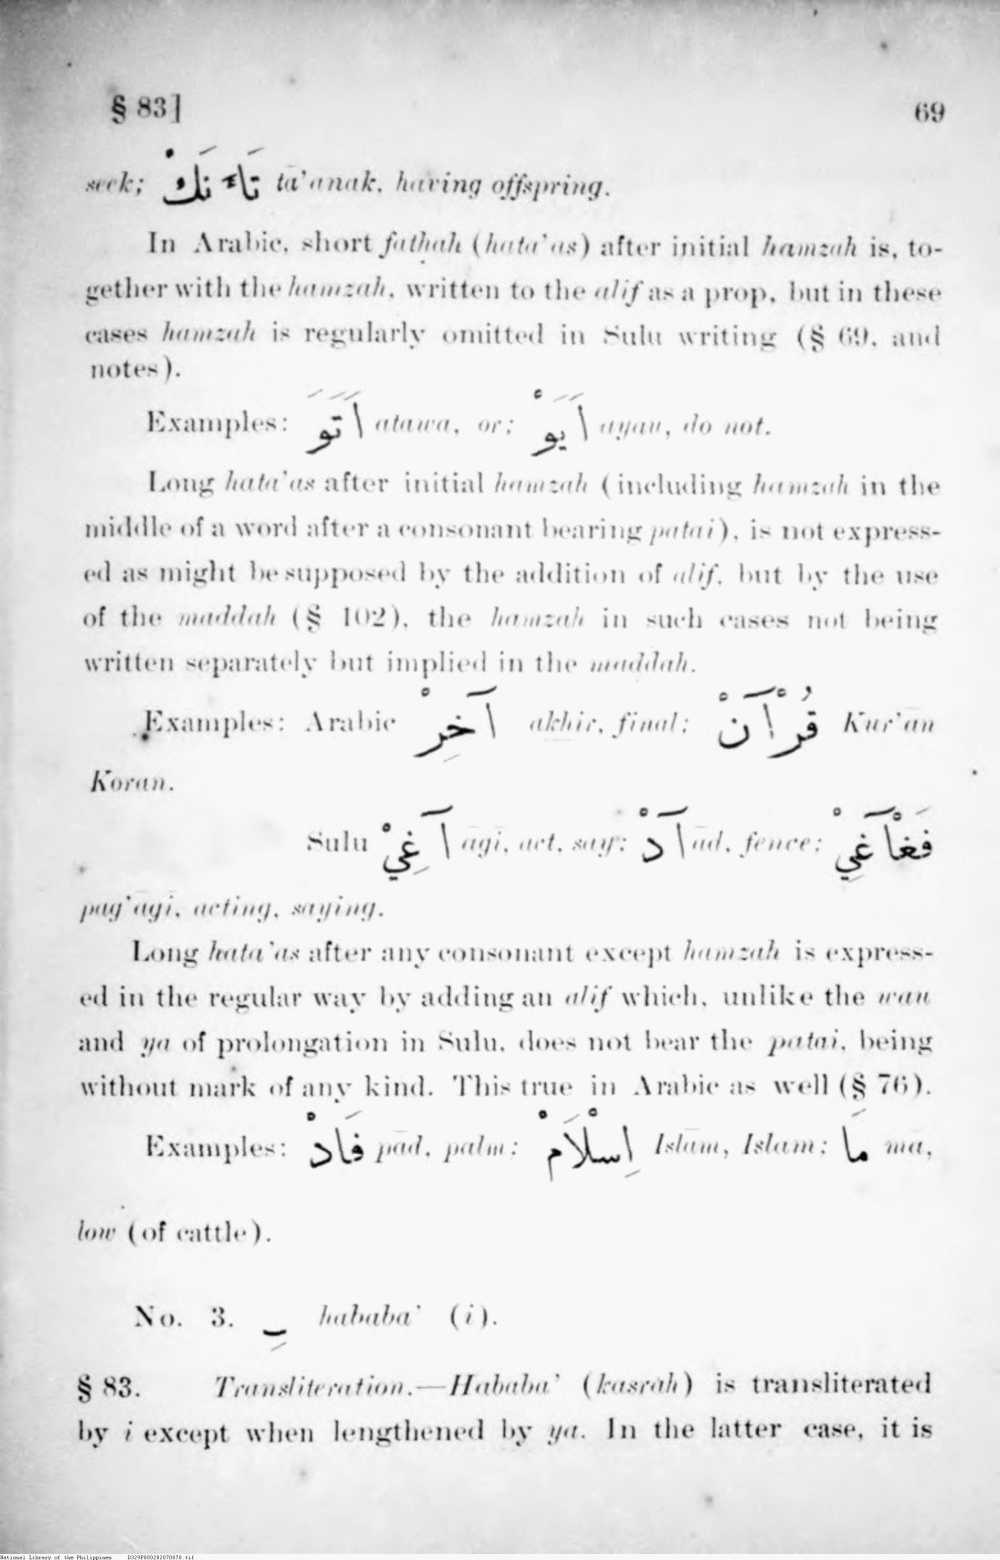 § 83] 69
seek; تَاءَنَكْ ta'anak, having offspring.
In Arabic, short fatḥah (hata'as) after initial hamzah is, to-
gether with the hamzah, written to the alif as a prop, but in these
cases hamzah is regularly omitted in Sulu writing (§ 69, and
notes).
Examples: اَتَوَ atawa, or; اَيَوْ ayau, do not.
Long hata'as after initial hamzah (including hamzah in the
middle of a word after a consonant bearing patai), is not express-
ed as might be supposed by the addition of alif, but by the use
of the maddah (§ 102), the hamzah in such cases not being
written separately but implied in the maddah.
Examples: Arabic آخِرْ akhir, final; قُرْآنْ Kur'an
Koran.
Sulu آغِيْ āgi, act, say; آدْ ād, fence; فَغْآغِيْ
pag'āgi, acting, saying.
Long hata'as after any consonant except hamzah is express-
ed in the regular way by adding an alif which, unlike the wau
and ya of prolongation in Sulu, does not bear the patai, being
without mark of any kind. This true in Arabic as well (§ 76).
Examples: فَادْ pād, palm; اِسْلَامْ Islām, Islam; مَا mā,
low (of cattle).
No. 3. ـِ hababa' (i).
§ 83. Transliteration.—Hababa' (kasrah) is transliterated
by i except when lengthened by ya. In the latter case, it is
National Library of the Philippines